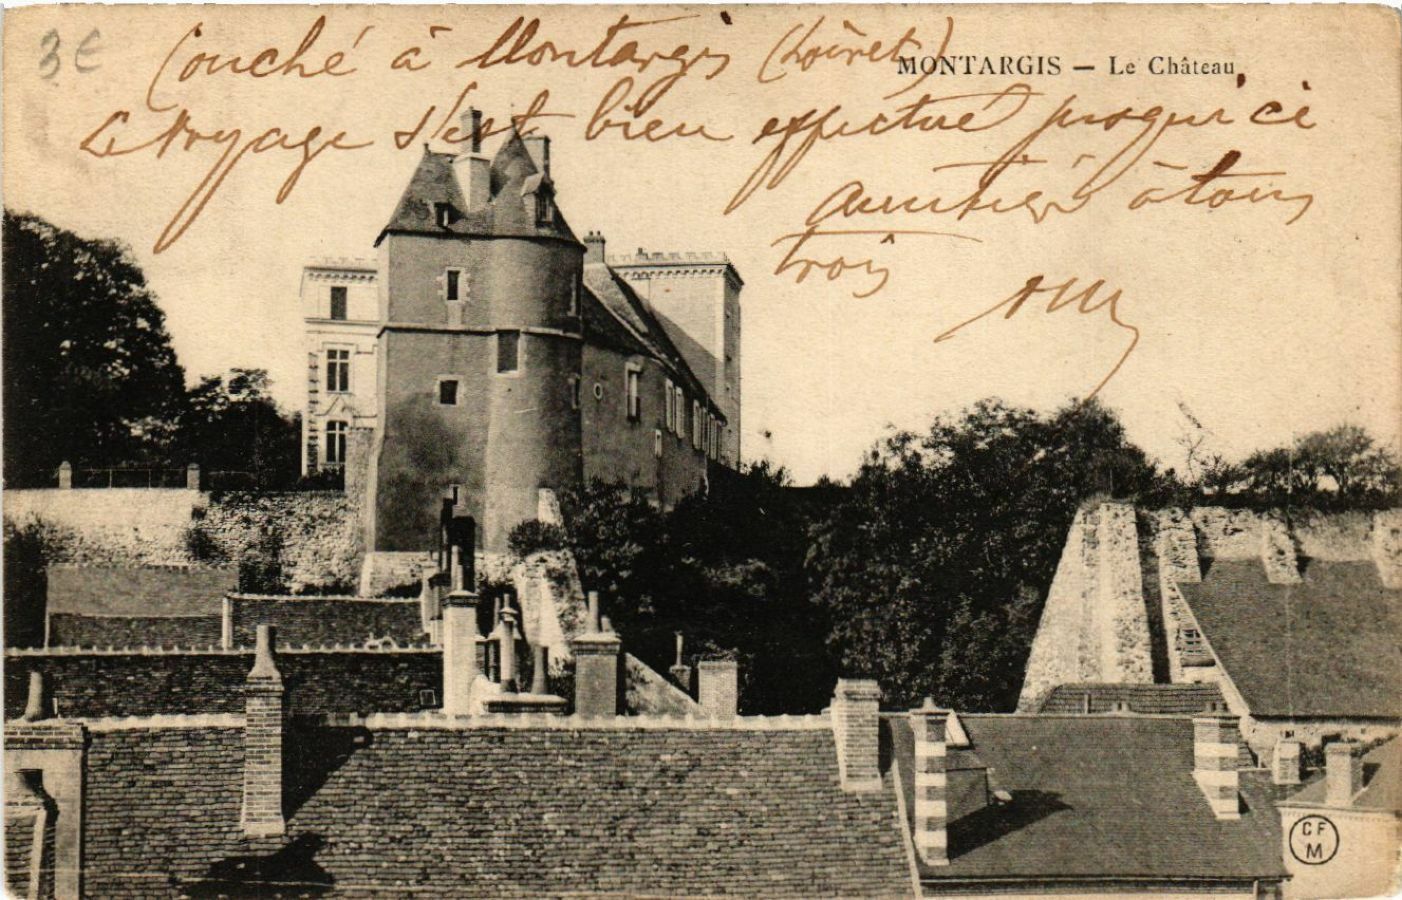 3 €
Couché à Montargis (Loiret)
MONTARGIS — Le Château
Le Voyage s'est bien effectué jusqu'ici
amitiés à tous
trois
C F
M